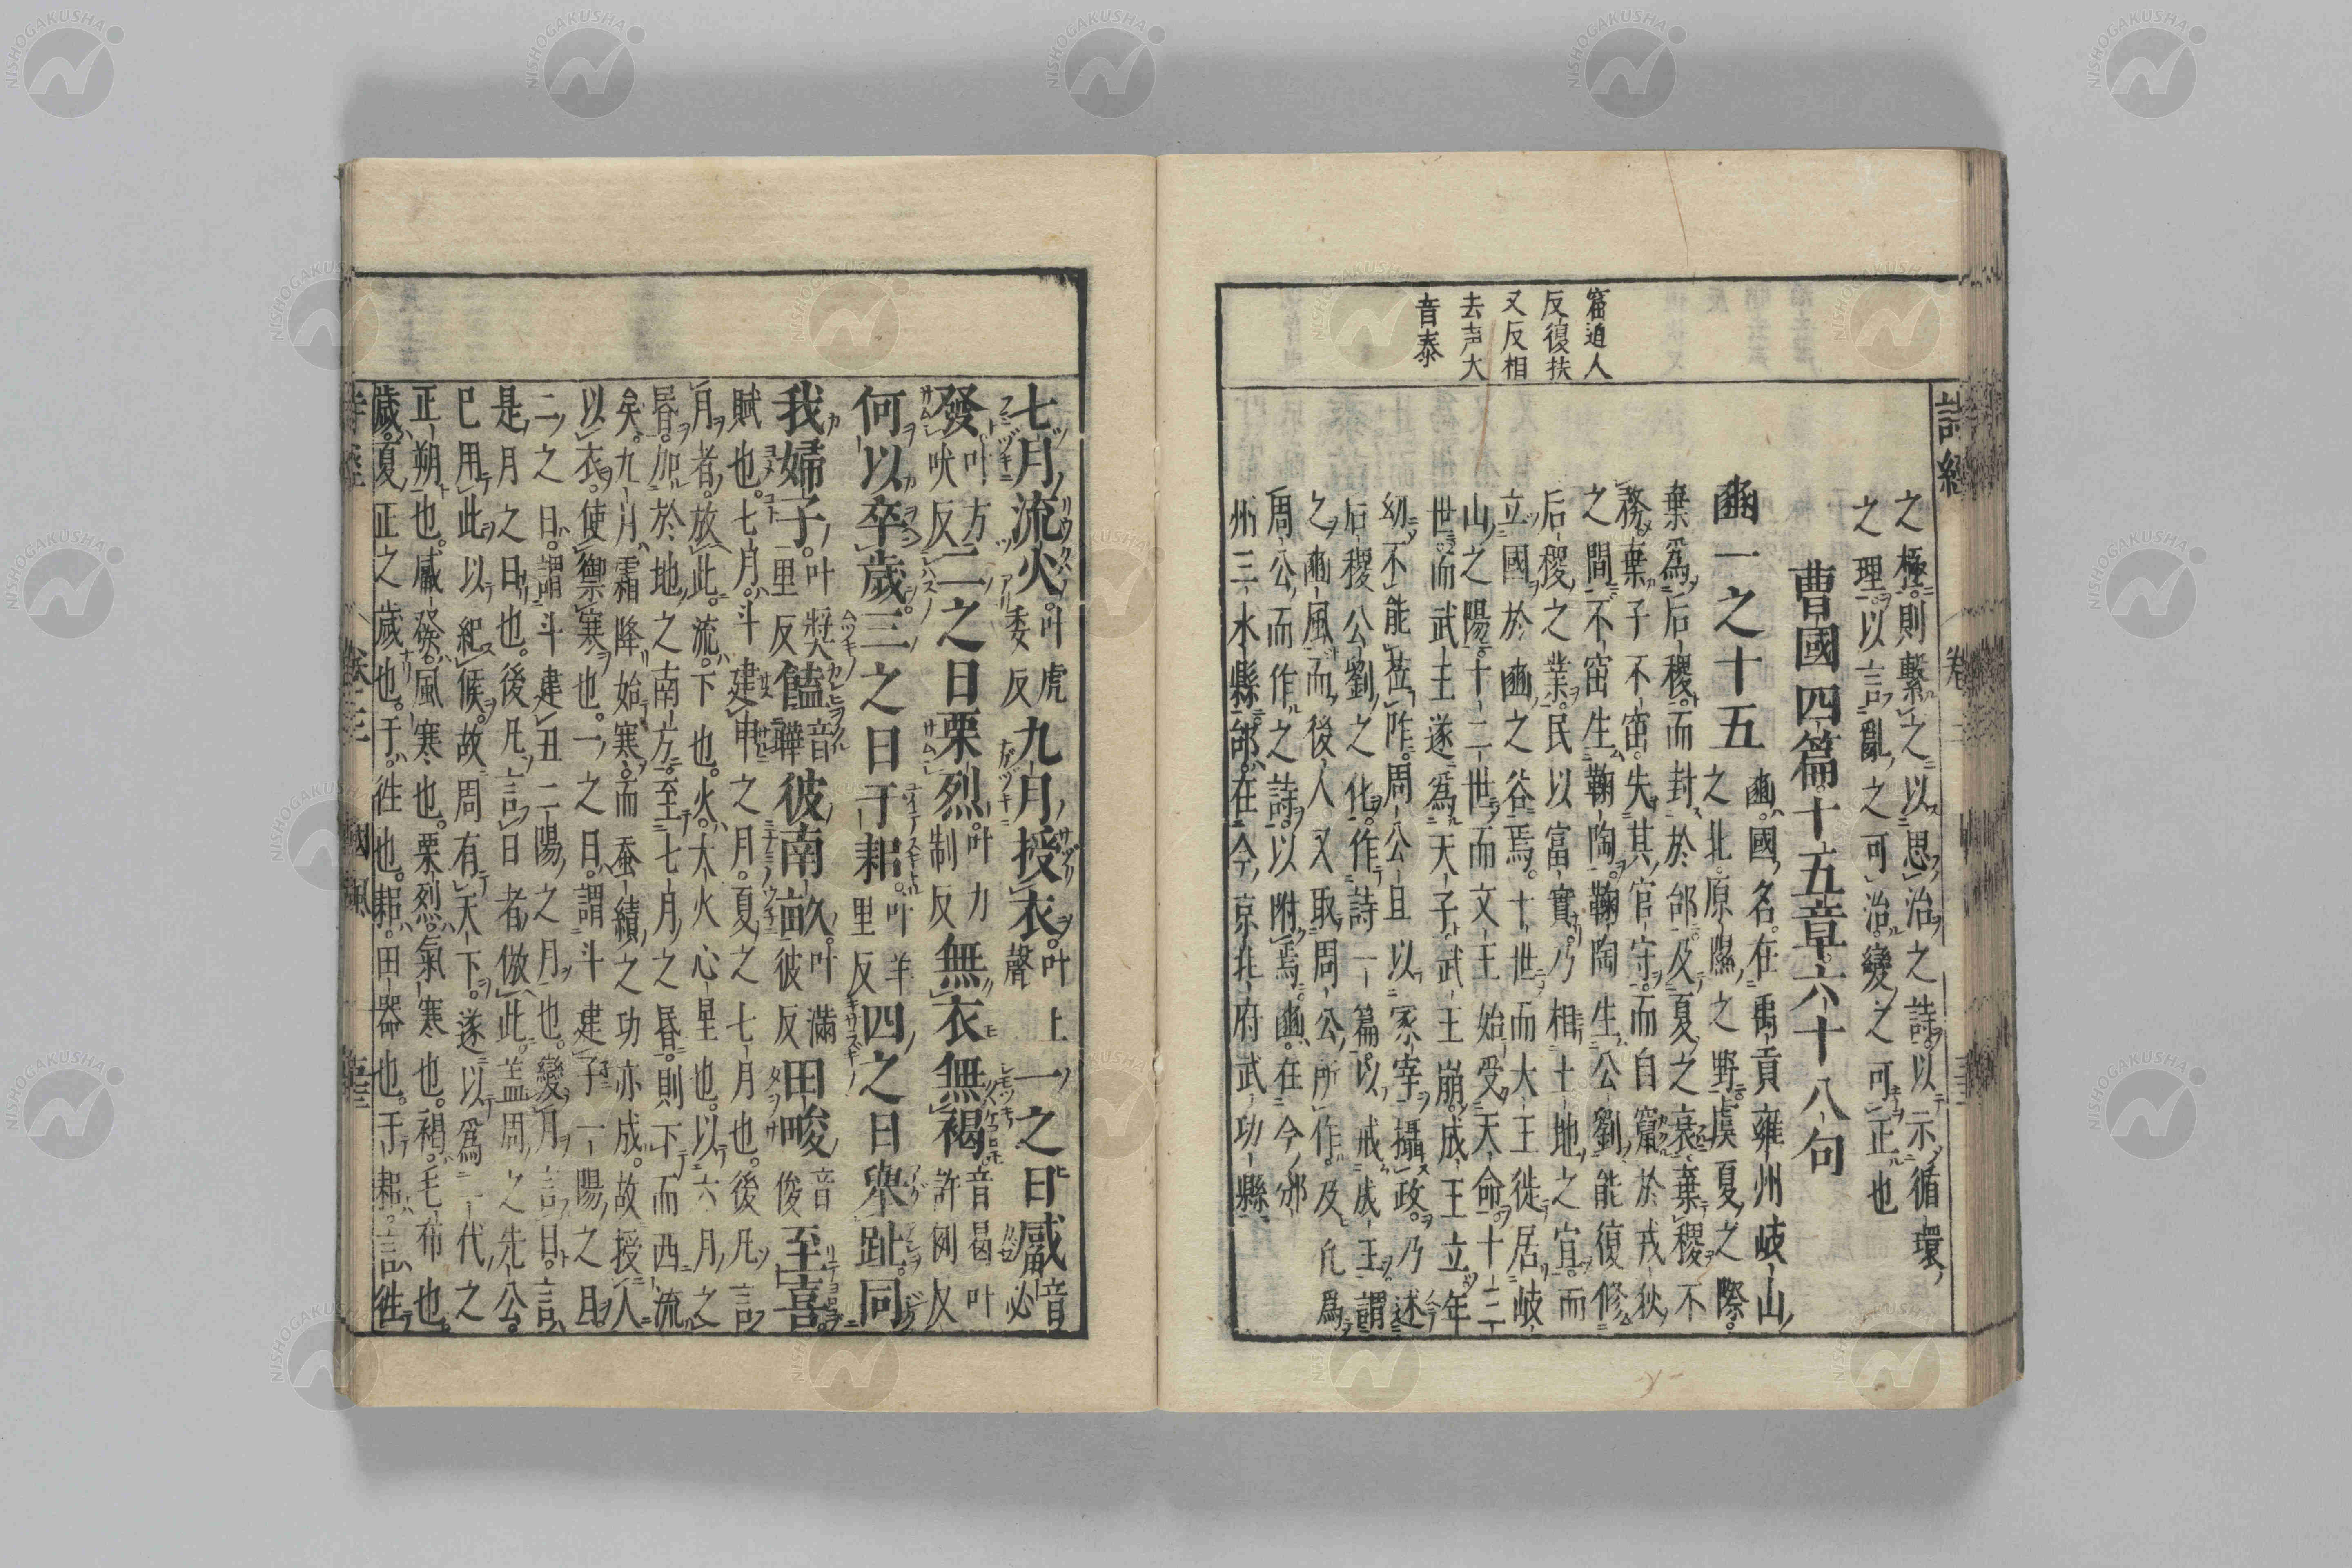 詩經
卷
三
窋迫人
反復扶
又反相
去声大
音泰
之極。則繫之以思治之詩。以示循環
之理。以言亂之可治。變之可正也
曹國四篇。十五章。六十八句
豳一之十五 豳。國名。在禹貢雍州岐山之北。原隰之野。虞夏之際。
棄爲后稷。而封於邰。及夏之衰。棄稷不
務。棄子不窋。失其官守。而自竄於戎狄
之間。不窋生鞠陶。鞠陶生公劉。能復修
后稷之業。民以富實。乃相土地之宜。而
立國於豳之谷焉。十世而大王徙居岐
山之陽。十二世而文王始受天命。十三
世而武王遂爲天子。武王崩。成王立。年
幼不能莅阼。周公旦以冢宰攝政。乃述
后稷公劉之化。作詩一篇。以戒成王。謂
之豳風。而後人又取周公所作。及凡爲
周公而作之詩。以附焉。豳。在今邠
州三水縣。邰在今京兆府武功縣
七月流火。叶虎委反九月授衣。叶上聲一之日觱音必
發叶方吠反二之日栗烈。叶力制反無衣無褐音曷叶許例反
何以卒歲三之日于耜。叶羊里反四之日舉趾。同
我婦子。叶奬里反饁音聯彼南畝。叶滿彼反田畯音俊至喜
賦也。七月。斗建申之月。夏之七月也。後凡言
月者。放此。流。下也。火。大火心星也。以六月之
昏。加於地之南方。至七月之昏。則下而西流
矣。九月霜降始寒。而蚕績之功亦成。故授人
以衣。使禦寒也。一之日。謂斗建子。一陽之月。
二之日。謂斗建丑。二陽之月也。變月言日。言
是月之日也。後凡言日者。倣此。蓋周之先公。
已用此以紀候。故周有天下。遂以爲一代之
正朔也。觱發。風寒也。栗烈。氣寒也。褐。毛布也。
歲。夏正之歲也。于。往也。耜。田器也。于耜。言往
詩經
卷三
國風
NISHOGAKUSHA